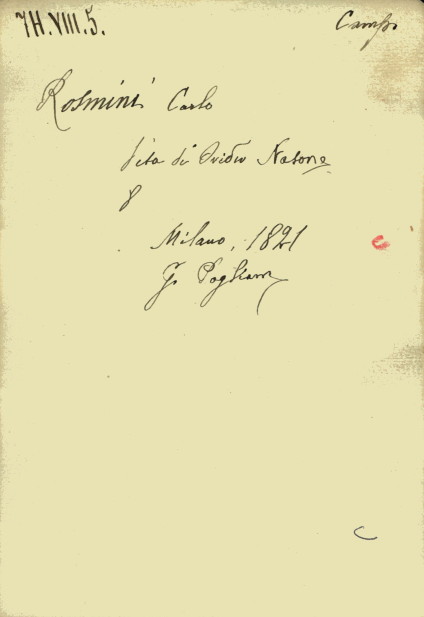 7H.VIII.5.
Campo
Rosmini Carlo
Vita di Ovidio Nasone
8
Milano, 1821
Pogliani
C